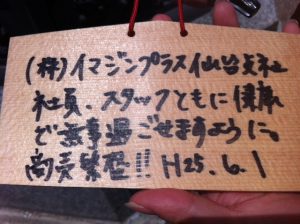 (株)イマジンプラス仙台支社
社員、スタッフともに健康
で無事過ごせますように。
商売繁盛!! H25.6.1